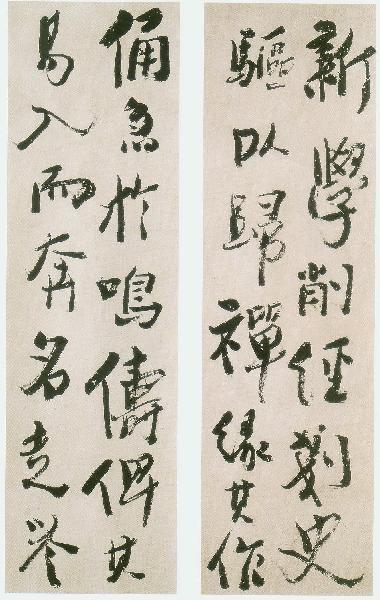 新學削經史
驅以歸禪緣其作
俑急於鳴儔俾其
易入而奔名走譽